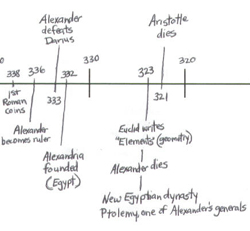 Alexander
defeats
Darius
Aristotle
dies
0
338
336
332
330
323
320
333
321
1st
Roman
coins
Alexander
becomes ruler
Alexandria
founded
(Egypt)
Euclid writes
"Elements" (geometry)
Alexander dies
New Egyptian dynasty
Ptolemy, one of Alexander's generals